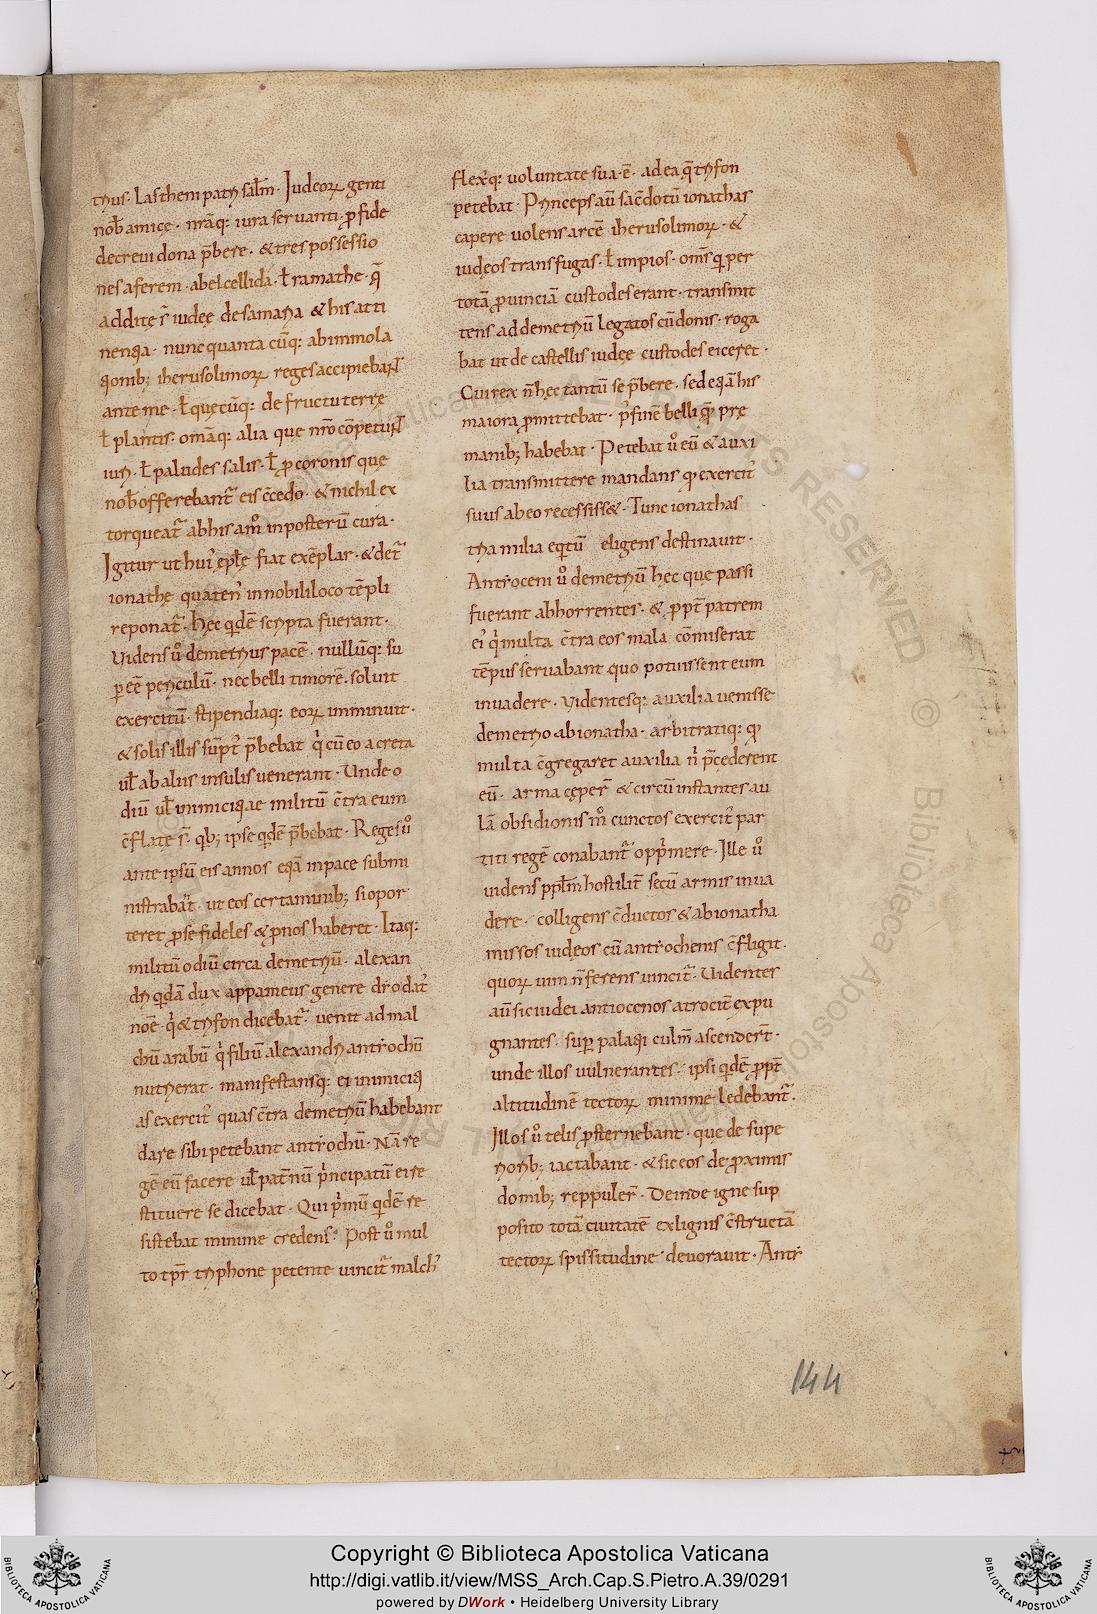 trius. Lastheni patri sal̄m. Iudeoꝝ genti
nob̄ amicę. nr̄aq: iura seruanti. ꝓ fide
decreui dona p̄bere. & tres possessio
nes aferem. abel cellida. ł ramathe. q̄
additę s̄ iudeę de samaria & his atti
nentia. nunc quanta cūq: ab immola
tionib; iherusolimoꝝ reges accipiebant
ante me. ł quęcūq: de fructu terrę
ł plantis. om̄aq: alia que nr̄o cōpetunt
iuri. ł paludes salis. ł ꝓ coronis que
nob̄ offerebant᷑ eis c̄cedo. & nichil ex
torqueat᷑ ab his am̊ in posterū cura.
Igitur ut hui᷒ ep̄lę fiat exēplar. & det᷑
ionathę quaten᷒ in nobili loco tēpli
reponat᷑. hęc qͥdē scripta fuerant.
Videns ů demetrius pacē. nullūq: su
ꝑ eē periculū. nec belli timorē. soluit
exercitū. stipendiaq: eoꝝ imminuit.
& solis illis sūpt᷒ p̄bebat qͥ cū eo a creta
ul̄ ab aliis insulis uenerant. Unde o
diū ul̄ inimiciciae militū c̄tra eum
c̄flatę s̄. qb; ipse qͥdē p̄bebat. Reges ů
ante ipsū eis annos eqͣ in pace submi
nistrabant. ut eos certaminib; si opor
teret ꝓ se fideles & ꝓnos haberet. Itaq:
militū odiū circa demetriū. alexan
dri qͥdā dux appameus genere diodat᷒
noē. qͥ & trifon dicebat᷑. uenit ad mal
chū arabū qͥ filiū alexandri antiochū
nutrierat. manifestansq: ei inimicici
as exercit᷒ quas c̄tra demetriū habebant
dare sibi petebant antiochū. Nā re
gē eū facere ul̄ pat̄nū pͥncipatū ei re
stituere se dicebat. Qui pͥmū qͥdē re
sistebat minime credens. Post ů mul
to tp̄r triphone petente uincit᷑ malch᷒
flex᷒q: uoluntate sua. ē. ad ea q̄ trifon
petebat. Princeps aū sac̄dotū ionathas
capere uolens arcē iherusolimoꝝ. &
iudęos transfugas. ł impios. om̄s qͥ per
totā ꝓuinciā custodes erant. transmit
tens ad demetriū legatos cū donis. roga
bat ut de castellis iudęę custodes eiceret.
Cui rex n̄ hec tantū se p̄bere. sed eqͣ his
maiora ꝓmittebat. p᷒ finē belli qͫ prę
manib; habebat. Petebat ů eū & auxi
lia transmittere mandans qͩ exercit᷒
suus ab eo recessiss&. Tunc ionathas
tria milia eqͥtū eligens destinauit.
Antioceni ů demetriū hęc quę passi
fuerant abhorrentes. & ꝓpt̄ patrem
ei᷒ qͥ multa c̄tra eos mala cōmiserat
tēpus seruabant quo potuissent eum
inuadere. Videntesq: auxilia uenisse
demetrio ab ionatha. arbitratiq: qͩ
multa c̄gregaret auxilia nͥ p̄cederent
eū. arma cęper̄ & circū instantes au
lā obsidionis m̊ cunctos exercit᷒ par
titi regē conabant᷑ oppͥmere. Ille ů
uidens ppl̄m hostilit̄ secū armis inua
dere. colligens c̄ductos & ab ionatha
missos iudęos cū antiochenis c̄fligit.
quoꝝ uim n̄ ferens uincit᷑. Uidentes
aū sic iudei antiocenos atrocit̄ expu
gnantes. suꝑ palatii culm̄ ascender̄t.
unde illos uulnerantes. ipsi qͥdē ꝓpt̄
altitudinē tectoꝝ minime ledebant᷑.
Illos ů telis ꝓsternebant. que de supe
riorib; iactabant. & sic eos de ꝓximis
domib; reppuler̄. Deinde igne sup
posito totā ciuitatē ex lignis c̄structā
tectoꝝ spissitudine deuorauit. Anti
144
Copyright © Biblioteca Apostolica Vaticana
http://digi.vatlib.it/view/MSS_Arch.Cap.S.Pietro.A.39/0291
powered by DWork • Heidelberg University Library